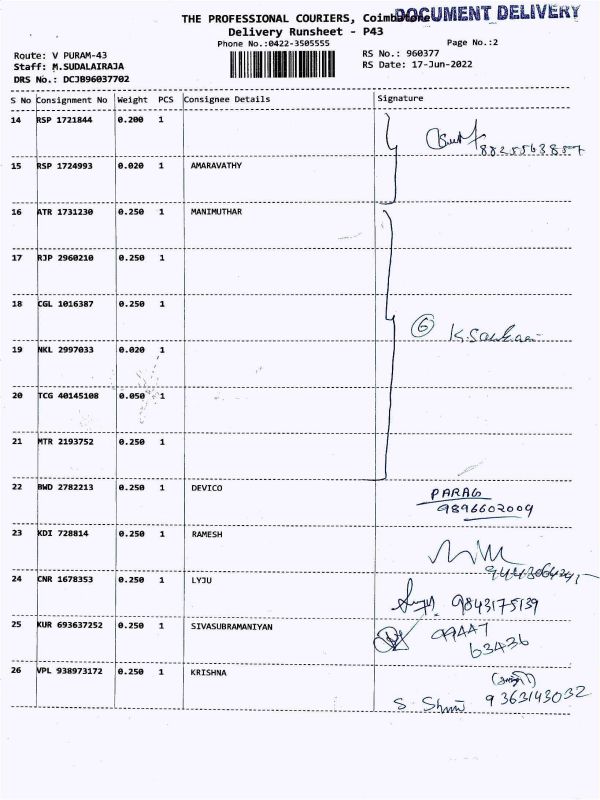 DOCUMENT DELIVERY
THE PROFESSIONAL COURIERS, Coimbatore
Delivery Runsheet - P43
Phone No.:0422-3505555
Page No.:2
Route: V PURAM-43
RS No.: 960377
Staff: M.SUDALAIRAJA
RS Date: 17-Jun-2022
DRS No.: DCJB96037702
S No Consignment No Weight PCS Consignee Details Signature
14 RSP 1721844 0.200 1
8825563857
15 RSP 1724993 0.020 1 AMARAVATHY
16 ATR 1731230 0.250 1 MANIMUTHAR
17 RJP 2960210 0.250 1
18 CGL 1016387 0.250 1
6
19 NKL 2997033 0.020 1
20 TCG 40145108 0.050 1
21 MTR 2193752 0.250 1
22 BWD 2782213 0.250 1 DEVICO PARAG
9896602009
23 KDI 728814 0.250 1 RAMESH
24 CNR 1678353 0.250 1 LYJU
9843175139
25 KUR 693637252 0.250 1 SIVASUBRAMANIYAN 99447
63436
26 VPL 938973172 0.250 1 KRISHNA
9363143032